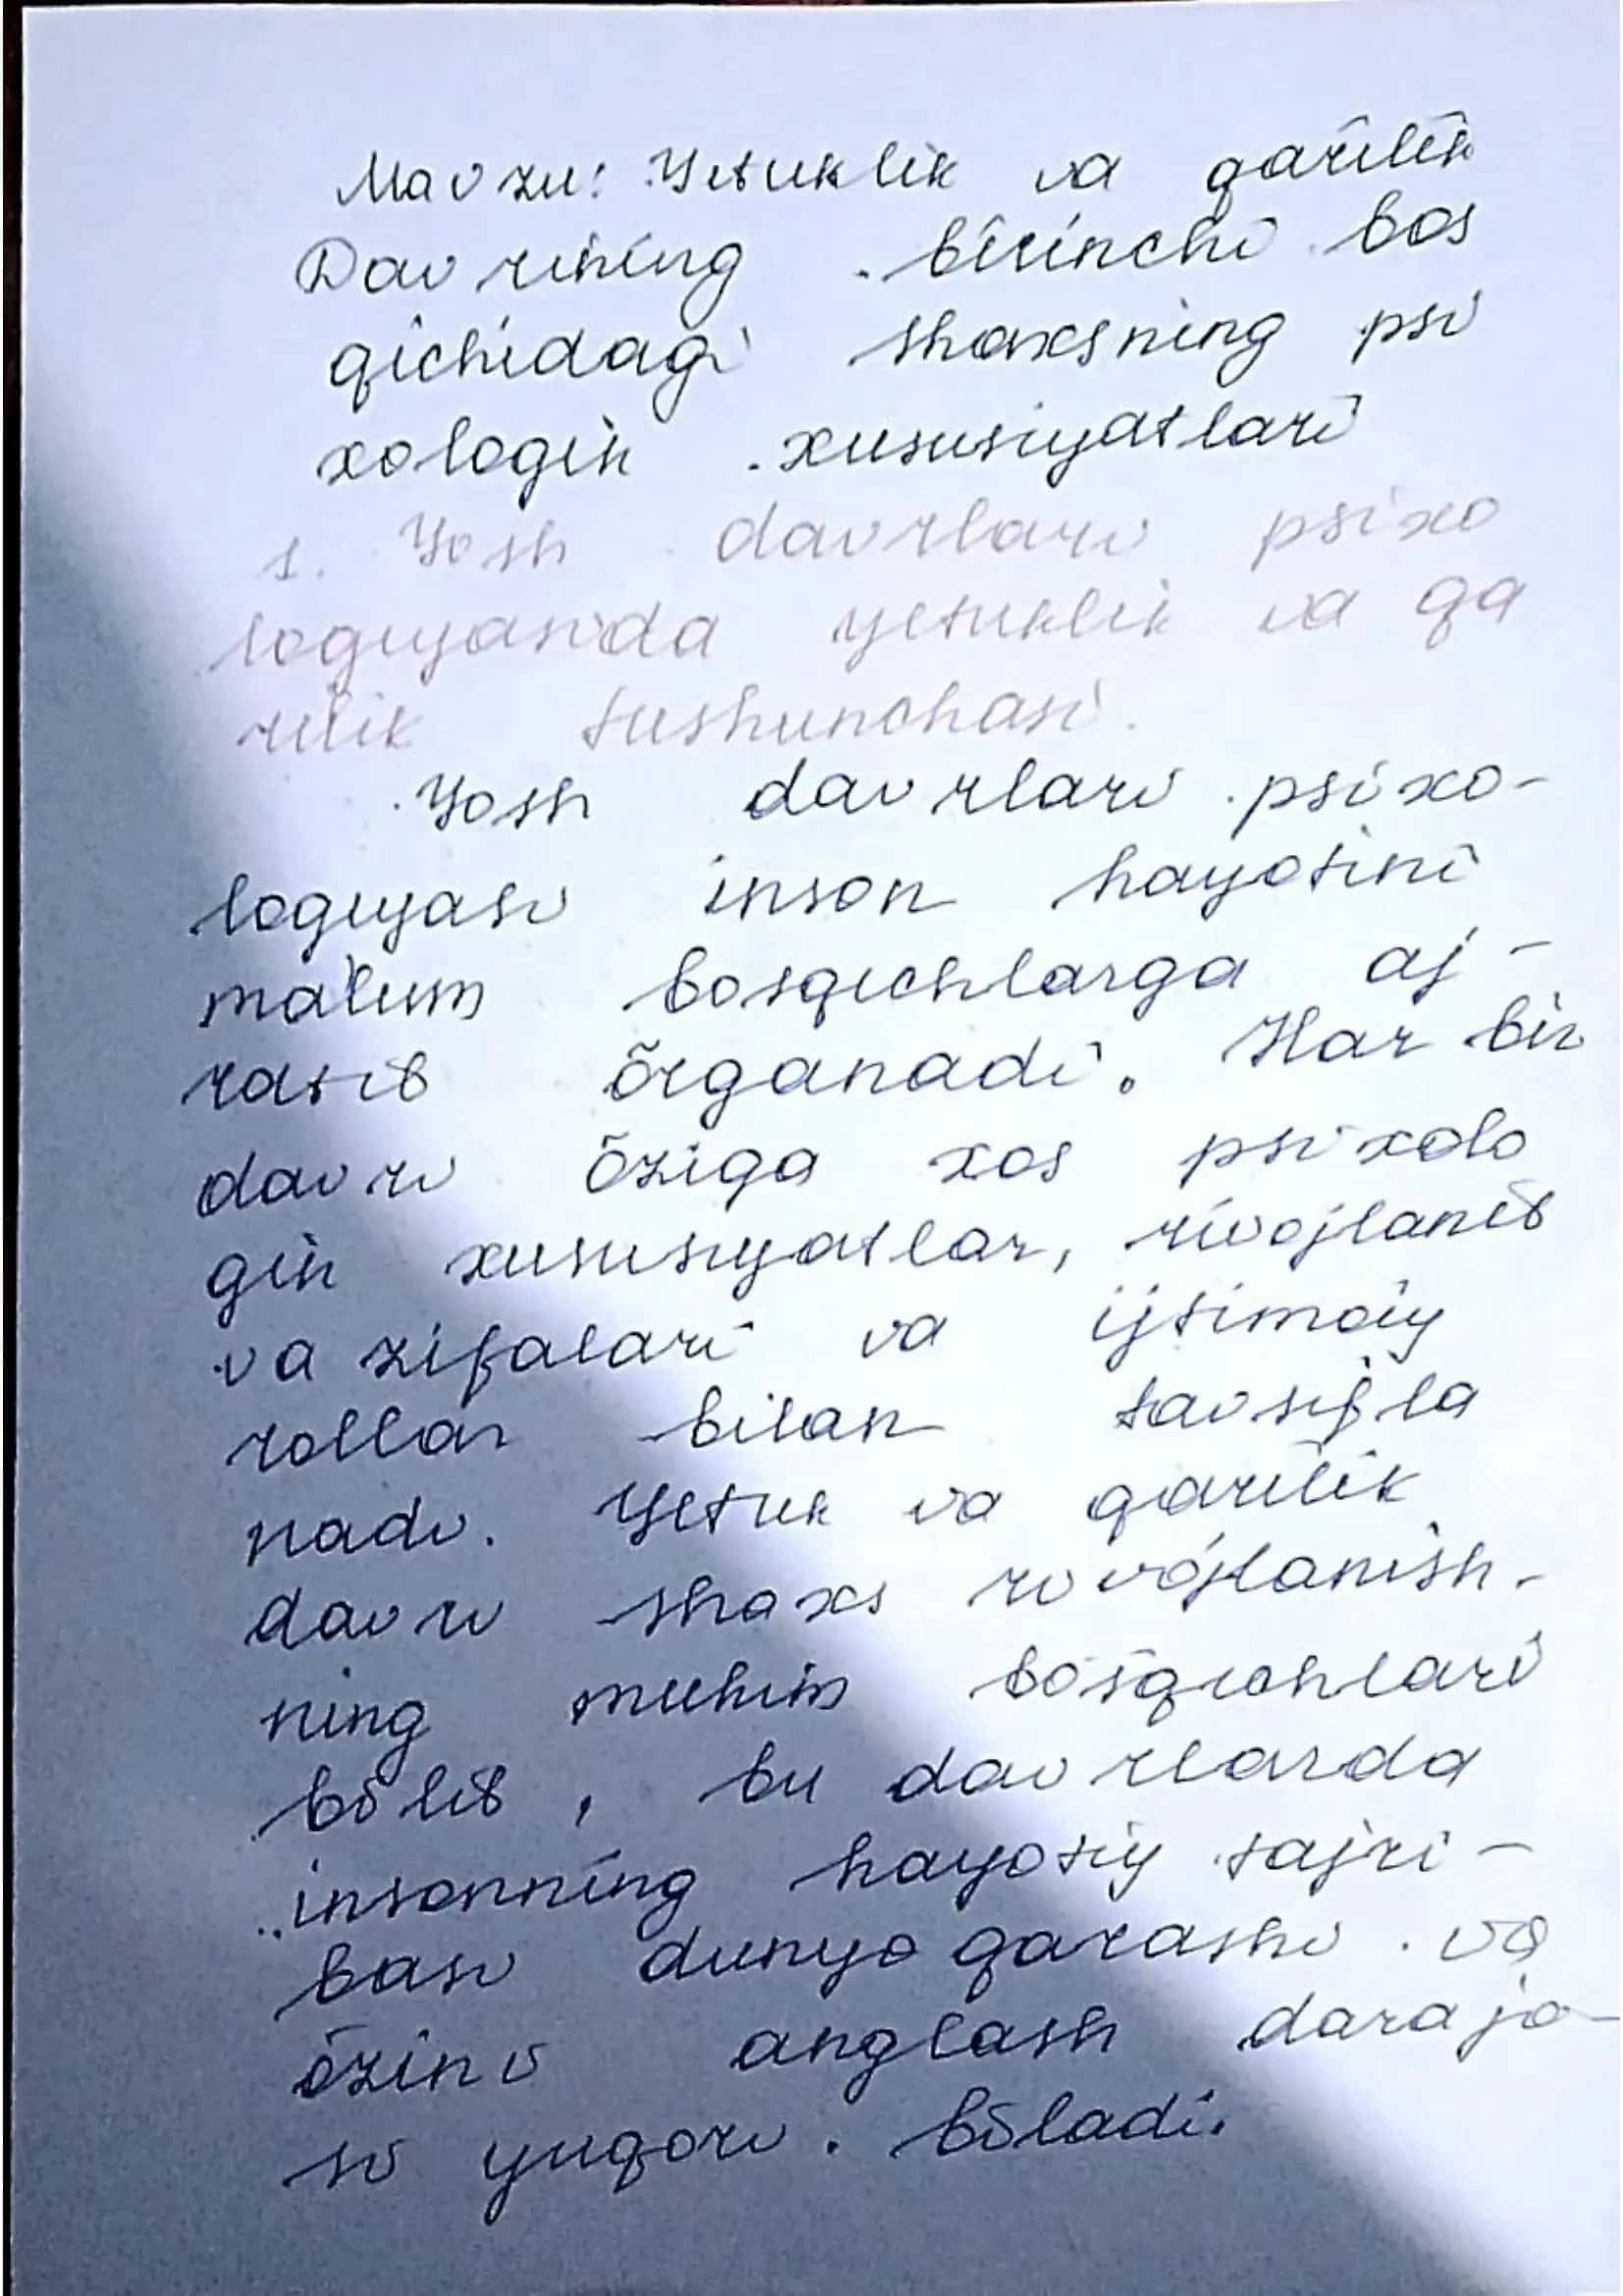 Mavzu: Yetuklik va qarilik
Davrining birinchi bos
qichidagi shaxsning psi
xologik xususiyatlari
1. Yosh davrlari psixo
logiyasida yetuklik va qa
rilik tushunchasi.
Yosh davrlari psixo-
logiyasi inson hayotini
ma'lum bosqichlarga aj-
ratib õrganadi. Har bir
davri õziga xos psixolo
gik xususiyatlar, rivojlanib
va zifalari va ijtimoiy
rollar bilan tavsifla
nadi. Yetuk va qarilik
davri shaxs rivojlanish-
ning muhim bosqichlari
bõlib, bu davrlarda
insonning hayotiy tajri-
basi dunyo qarashi va
õzini anglash daraja-
si yuqori. bõladi.